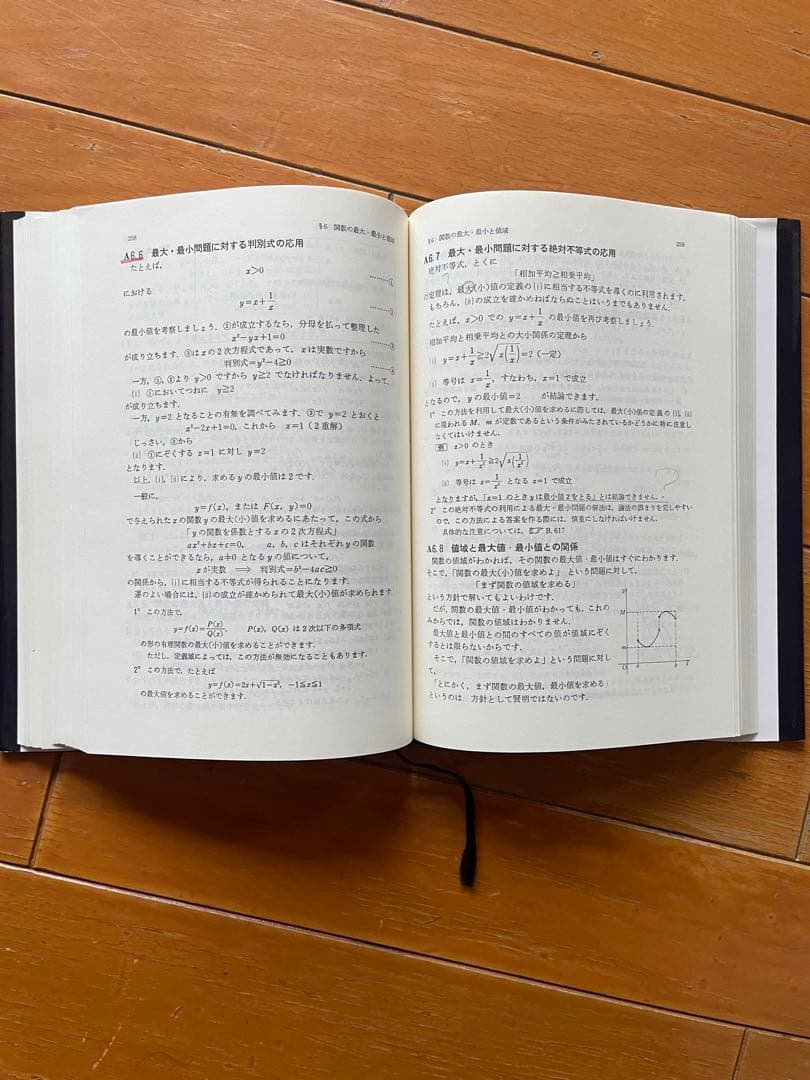 258
§6 関数の最大・最小と値域
A6.6 最大・最小問題に対する判別式の応用
たとえば，
x>0 ………①
における
y=x+1/x ………②
の最小値を考察しましょう．②が成立するなら，分母を払って整理した
x²−yx+1=0 ………③
が成り立ちます．③はxの2次方程式であって，xは実数ですから
判別式=y²−4≧0 ………④
一方，①，②より y>0 ですから y≧2 でなければなりません．よって，
(i) ①においてつねに y≧2
が成り立ちます．
一方，y=2 となることの有無を調べてみます．③で y=2 とおくと
x²−2x+1=0，これから x=1（2重解）
じっさい，②から
(ii) ①にぞくする x=1 に対し y=2
となります．
以上，(i)，(ii)により，求めるyの最小値は2です．
一般に，
y=f(x)，または F(x, y)=0
で与えられたxの関数yの最大(小)値を求めるにあたって，この式から
「yの関数を係数とするxの2次方程式」
ax²+bx+c=0， a，b，cはそれぞれyの関数
を導くことができるなら，a≠0 となるyの値について，
xが実数 ⟹ 判別式=b²−4ac≧0
の関係から，(i)に相当する不等式が得られることになります．
運のよい場合には，(ii)の成立が確かめられて最大(小)値が求められます．
1° この方法で，
y=f(x)=P(x)/Q(x)， P(x)，Q(x)は2次以下の多項式
の形の有理関数の最大(小)値を求めることができます．
ただし，定義域によっては，この方法が無効になることもあります．
2° この方法で，たとえば
y=f(x)=2x+√(1−x²)，−1≦x≦1
の最大値を求めることができます．
§6 関数の最大・最小と値域
259
A6.7 最大・最小問題に対する絶対不等式の応用
絶対不等式，とくに
「相加平均≧相乗平均」
の定理は，最大(小)値の定義の(i)に相当する不等式を導くのに利用されます．
もちろん，(ii)の成立を確かめねばならぬことはいうまでもありません．
たとえば，x>0 での y=x+1/x の最小値を再び考察しましょう．
相加平均と相乗平均との大小関係の定理から
(i) y=x+1/x≧2√(x(1/x))=2（一定）
(ii) 等号は x=1/x，すなわち，x=1 で成立
となるので，yの最小値=2 が結論できます．
1° この方法を利用して最大(小)値を求めるに際しては，最大(小)値の定義の(i)，(ii)
に現われるM，mが定数であるという条件がみたされているかどうかに特に注意し
なくてはいけません．
例 x>0 のとき
(i) y=x+1/x²≧2√(x(1/x²))
(ii) 等号は x=1/x² となる x=1 で成立
となりますが，「x=1のときyは最小値2をとる」とは結論できません．
?
2° この絶対不等式の利用による最大・最小問題の解法は，論法の誤まりを犯しやすい
ので，この方法による答案を作る際には，慎重にしなければいけません．
具体的な注意については，☞ B.617
A6.8 値域と最大値・最小値との関係
関数の値域がわかれば，その関数の最大値・最小値はすぐにわかります．
そこで，「関数の最大(小)値を求めよ」という問題に対して，
「まず関数の値域を求める」
という方針で解いてもよいわけです．
だが，関数の最大値・最小値がわかっても，これの
みからでは，関数の値域はわかりません．
最大値と最小値との間のすべての値が値域にぞく
するとは限らないからです．
そこで，「関数の値域を求めよ」という問題に対し
て，
「とにかく，まず関数の最大値，最小値を求める」
というのは，方針として賢明ではないのです．
y
M
m
x